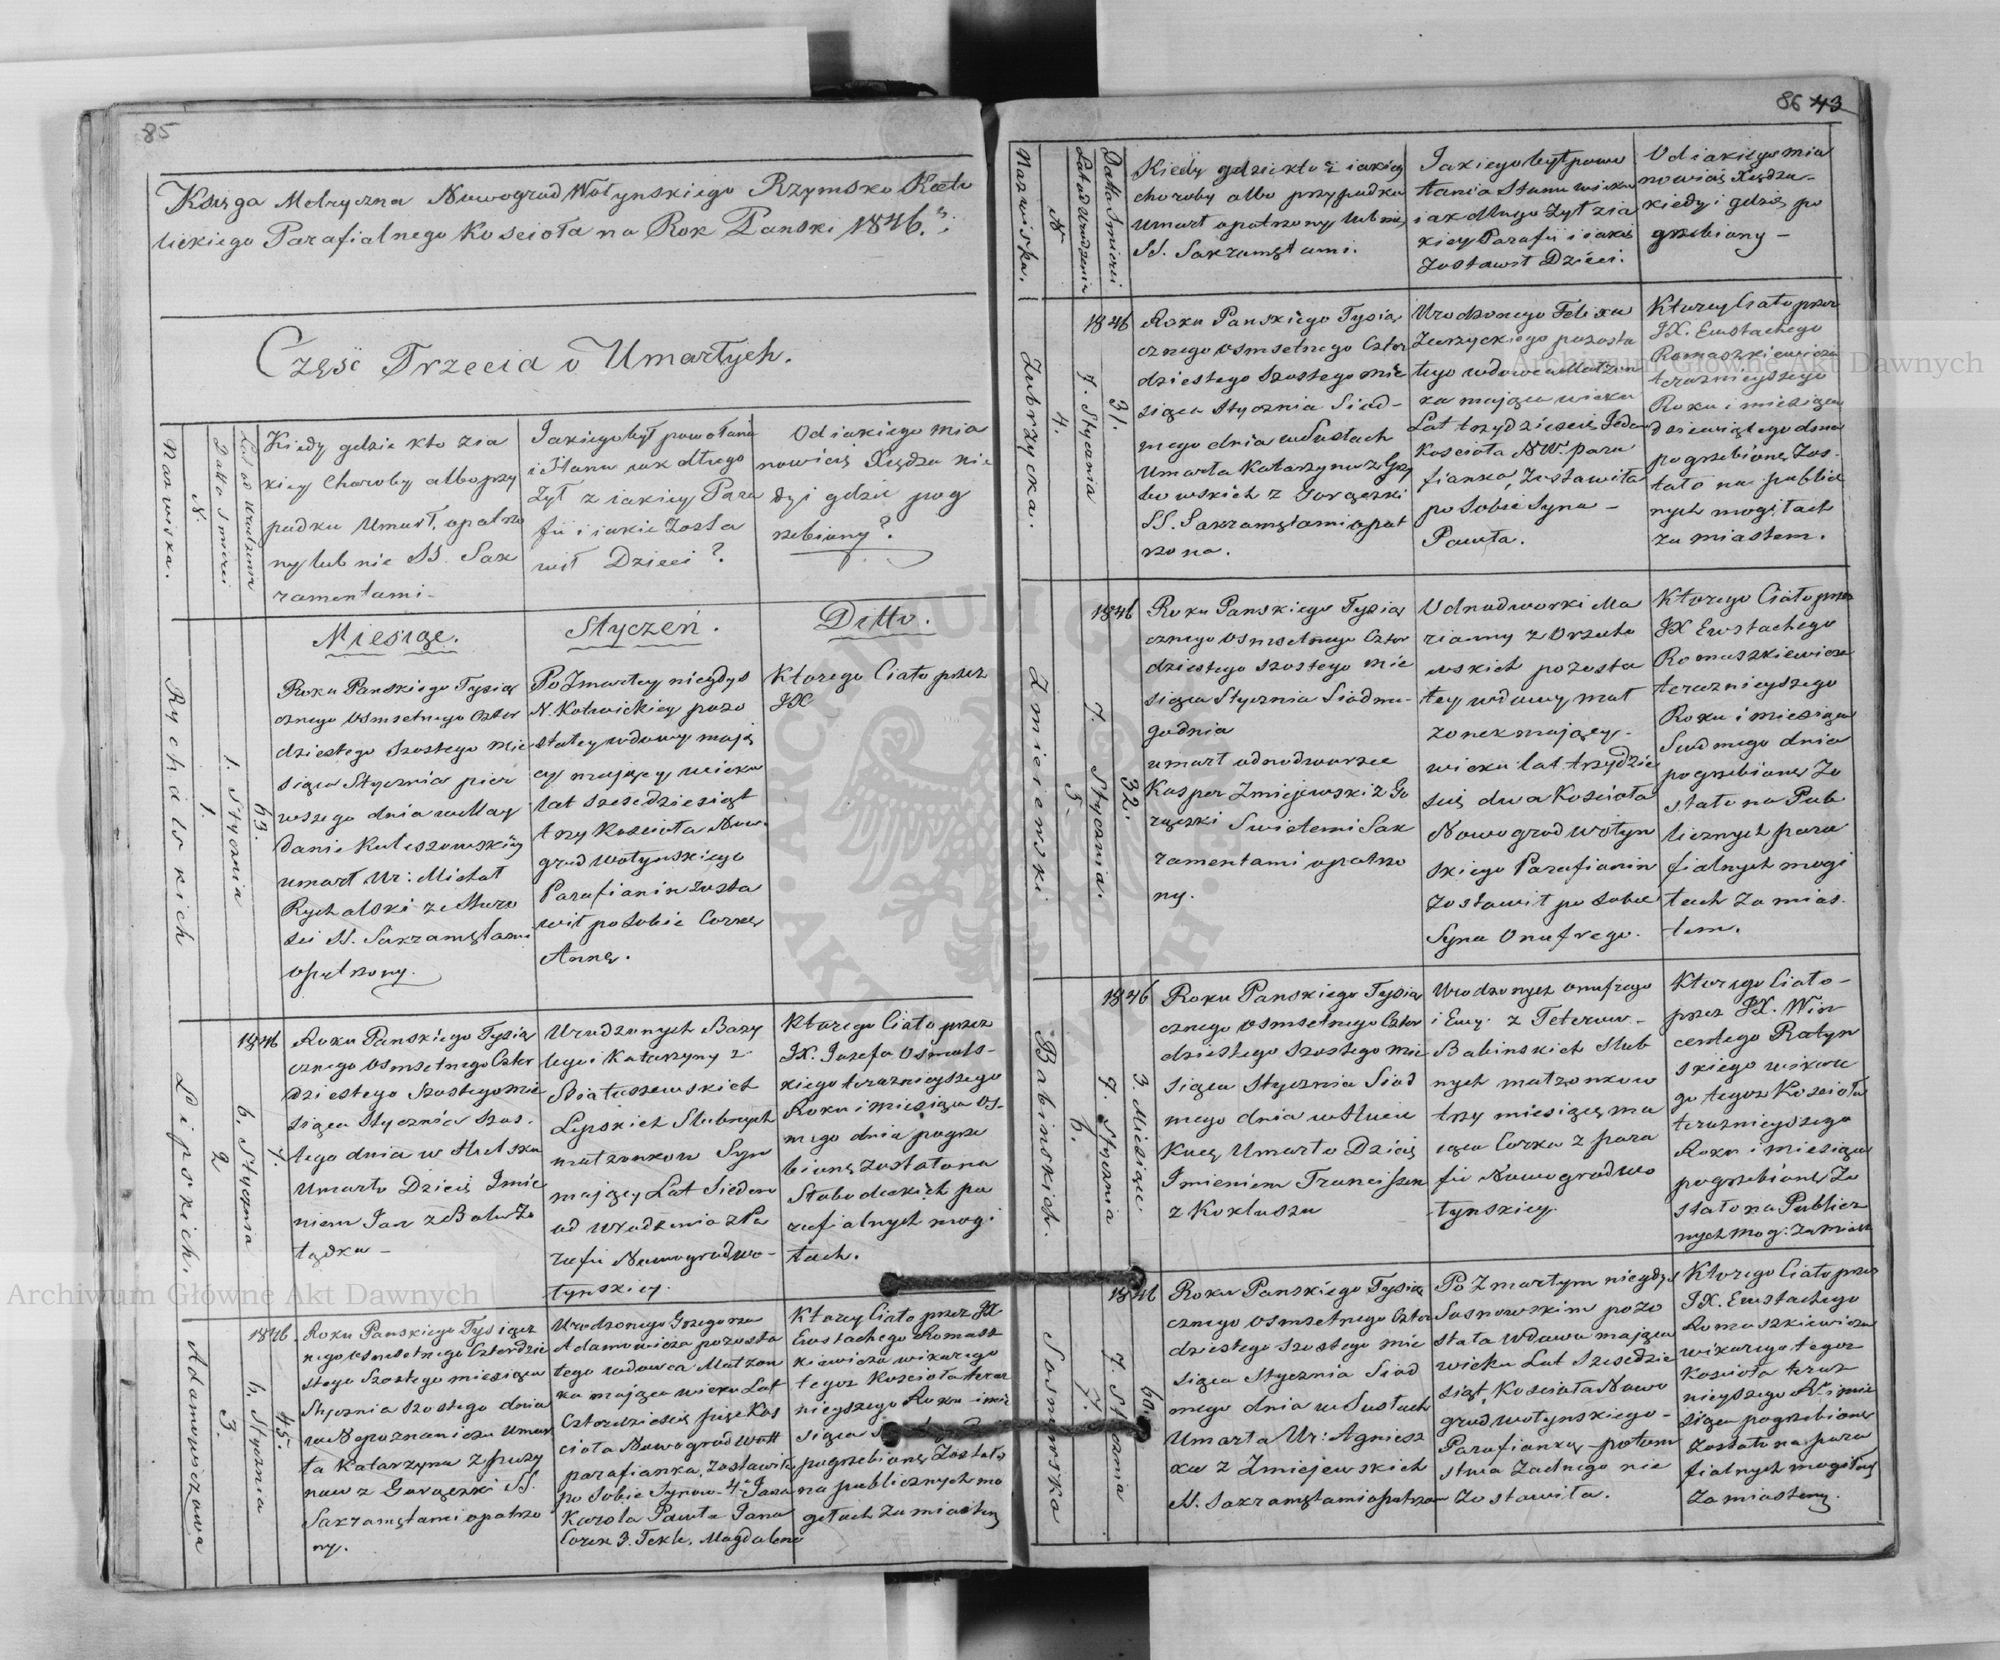 85
Księga Metryczna Nowogrod Wołynskiego Rzymsko Kato
lickiego Parafialnego Koscioła na Rok Panski 1846.
Część Trzecia o Umarłych.
Nazwiska.
N.
Datta Smierci
Lat od Urodzenia
Kiedy gdzie kto zia
kiey Choroby albo przy
padku Umarł, opatrzo
ny lub nie SS. Sak
ramentami.
Jakiego był powołania
i Stanu jak długo
Zył z iakiey Para
fii i iakie Zosta
wił Dzieci?
Od iakiego mia
nowicie Xiędza kie
dy i gdzie pog
rzebiony?
Miesiąc.
Styczeń.
Ditto.
Rychalskich
1.
1. Stycznia
63.
Roku Panskiego Tysią
cznego Osmsetnego Czter
dziestego Szostego Mie
siąca Stycznia pier
wszego dnia w May
danie Kuleszowskim
umarł Ur: Michał
Rychalski ze Staro
sci SS. Sakramętami
opatrzony.
Po Zmarłey niegdys
N. Kotwickiey pozo
stałey wdowy mają
cy mający wieku
lat szescdziesiąt
trzy Koscioła Now.
grod Wołynskiego
Parafianin zosta
wił po Sobie Corkę
Annę.
Ktorego Ciało przez
JX
Lipskich.
2
6. Stycznia
7.
1846
Roku Panskiego Tysią
cznego Osmsetnego Czter
dziestego Szostego Mie
siąca Stycznia Szos-
tego dnia w Hulsku
Umarło Dziecię Imie
niem Jan z Bolu Żo
łądka -
Urodzonych Bazy
lego i Katarzyny z
Białuszewskich
Lipskich Slubnych
małzonkow Syn
maiący Lat Siedem
od Urodzenia z Pa
rafii Nowogrodwo-
łynskiey.
Ktorego Ciało przez
JX. Jozefa Osmols-
kiego teraznieyszego
Roku i miesiąca Os-
mego dnia pogrze
bione zostało na
Słobodeckich pa
rafialnych mogi
łach.
Adamowiczowa
3.
6. Stycznia
45.
1846.
Roku Panskiego Tysiącz
nego Osmsetnego Czterdzie
stego Szostego miesiąca
Stycznia szostego dnia
w Niepoznaniczu Umar
ła Katarzyna z
now z Gorączki SS.
Sakramętami opatrzo
ny.
Urodzonego Grzegorza
Adamowicza pozosta
łego wdowca Małzon
ka mająca wieku Lat
Czterdziescie pięc Kos
cioła Nowogrod Woł
parafianka, Zostawiła
po Sobie Synow 4
Karola Pawła Jana
Corek 3. Tekle, Magdalene
Ktorey Ciało przez JX
Eustachego Romasz
kiewicza wikarego
tegoz Koscioła teraz
nieyszego Roku i mie
siąca
pogrzebione Zostało
na publicznych mo
giłach za miastem
86 43
Nazwiska.
N.
Datta Smierci
Lat od Urodzenia
Kiedy gdzie kto i z iakiey
choroby albo przypadku
Umarł opatrzony lub nie,
SS. Sakramętami.
Jakiego był powo
łania Stanu wieku
i jak długo Zył z ia
kiey Parafii i iakie
Zostawił Dzieci.
Od iakiego mia
nowicie Xiędza
kiedy i gdzie po
grzebiony -
Zubrzycka.
4.
7. Stycznia
31.
1846
Roku Panskiego Tysią
cznego Osmsetnego Czter
dziestego Szostego mie
siąca Stycznia Siod-
mego dnia w Susłach
Umarła Katarzyna z Grzy
bowskich z Gorączki
SS. Sakramętami opat
rzona.
Urodzonego Felixa
Zubrzyckiego pozosta
łego wdowca Małzon
ka mająca wieku
Lat trzydziescie Jeden
Koscioła NW. para
fianka, Zostawiła
po Sobie Syna -
Pawła.
Ktorey Ciało przez
JX. Eustachego
Romaszkiewicza
teraznieyszego
Roku i miesiąca
dziewiątego dnia
pogrzebione Zos-
tało na publicz
nych mogiłach
za miastem.
Zmiejewski.
5.
7. Stycznia.
32.
1846
Roku Panskiego Tysią
cznego Osmsetnego Czter
dziestego szostego mie
siąca Stycznia Siodme-
go dnia
umarł odnodworzec
Kasper Zmiejewski z Go
rączki Swiętemi Sak
ramentami opatrzo
ny.
Odnodworki Ma
rianny z Orzecho
wskich pozosta
łey wdowy mał
zonek maiący
wieku lat trzydzie
scie dwa Koscioła
Nowogrod Wołyn
skiego Parafianin
Zostawił po sobie
Syna Onufrego.
Ktorego Ciało przez
JX Eustachego
Romaszkiewicza
teraznieyszego
Roku i miesiąca
Siodmego dnia
pogrzebione Zo
stało na Pub
licznych para
fialnych mogi
łach za mias.
tem.
Babinskich.
6.
7. Stycznia
3. Miesiące
1846
Roku Panskiego Tysią
cznego Osmsetnego Czter
dziestego Szostego mie
siąca Stycznia Siod
mego dnia w
Umarło Dziecię
Imieniem Franciszka
z Kokluszu
Urodzonych Onufrego
i Ewy z Teterow-
Babinskich Slub
nych małzonkow
trzy miesiące ma
iąca Corka z para
fii Nowogrodwo
łynskiey.
Ktorego Ciało-
przez JX. Win
centego Ratyn
skiego wikare
go tegoz Koscioła
teraznieyszego
Roku i miesiąca
pogrzebione Zo
stało na Publicz
nych mog: za miast
Sosnowska
7.
7. Stycznia
60.
1846
Roku Panskiego Tysią
cznego Osmsetnego Czter
dziestego Szostego mie
siąca Stycznia Siod
mego dnia w Susłach
Umarła Ur: Agniesz
ka z Zmiejewskich
SS. Sakramętami opatrzon
Po Zmarłym niegdys
Sosnowskim pozo
stała Wdowa mająca
wieku Lat Szescdzie
siąt, Koscioła Nowo
grod Wołynskiego-
Parafianka, potom
stwa Zadnego nie
Zostawiła.
Ktorego Ciało przez
JX. Eustachego
Romaszkiewicza
wikarego tegoz
Koscioła teraz
nieyszego R. i mie
siąca pogrzebione
Zostało na para
fialnych mogiłach
Za miastem.
Archiwum Główne Akt Dawnych
Archiwum Główne Akt Dawnych